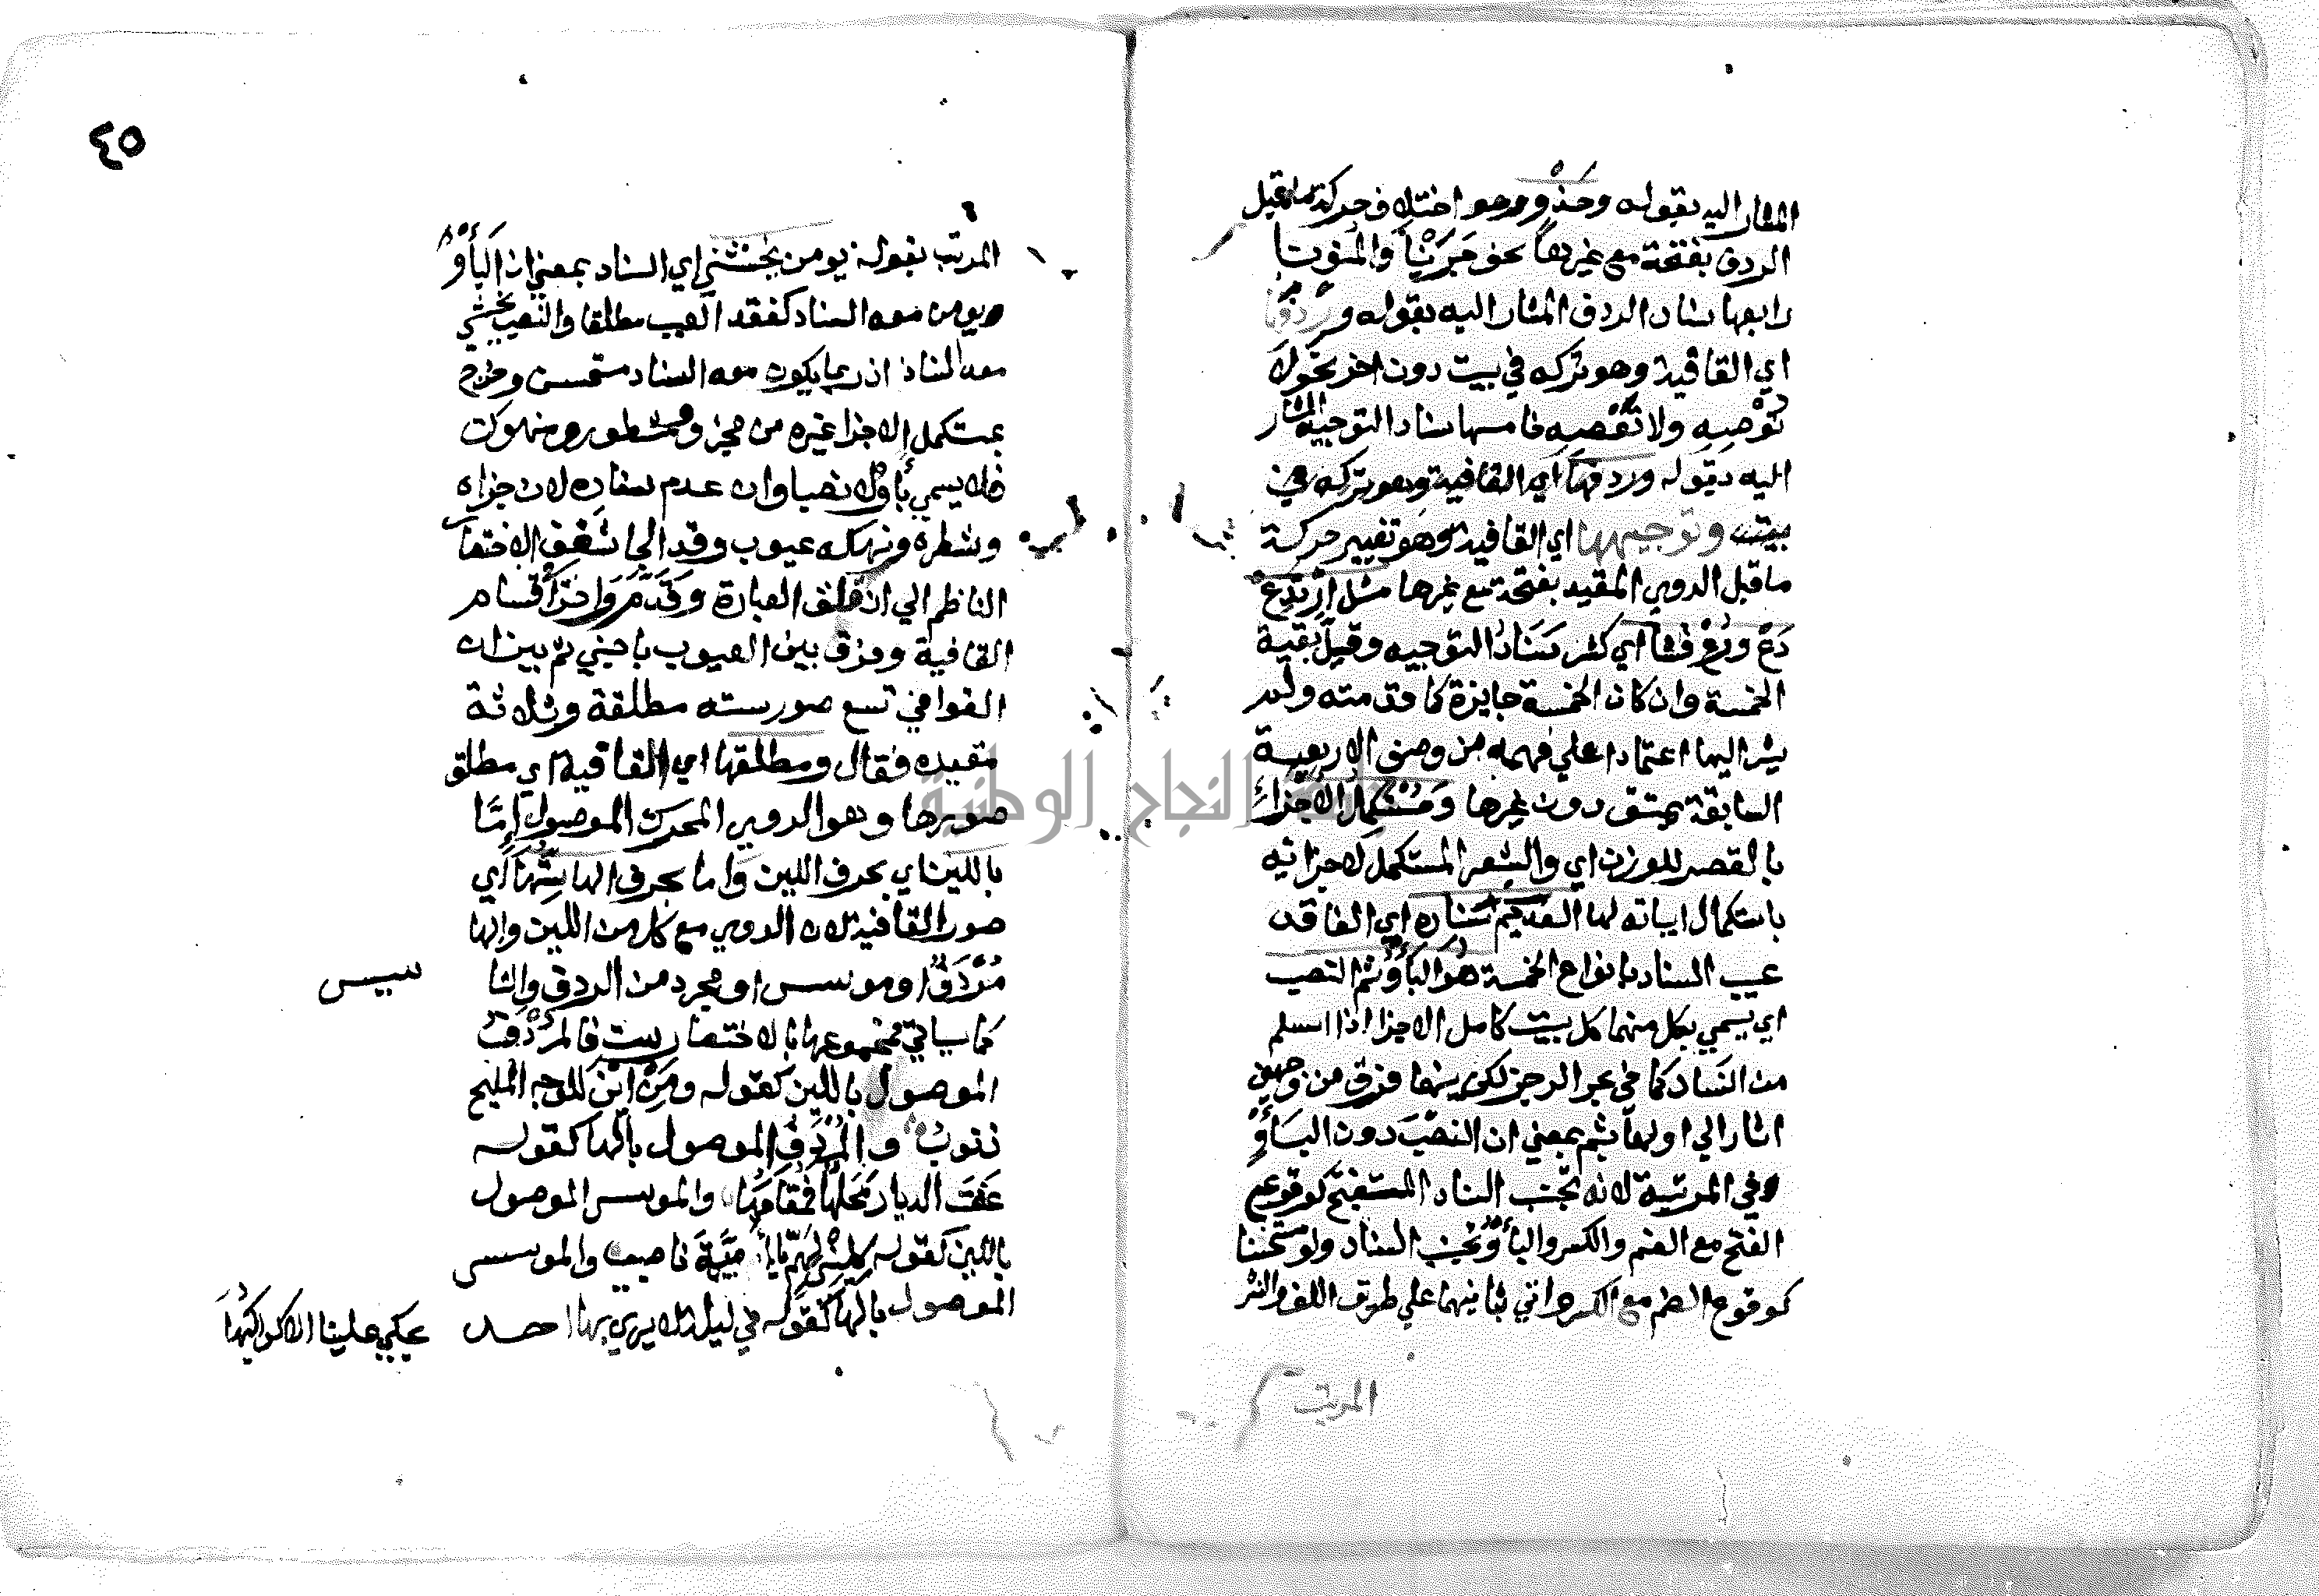 المشار اليه بقوله وحذو وهو اختلاف حركة ما قبل
الردف بفتحة مع غيرها نحو جَرَيْنا والمنونا
رابعها سناد الردف المشار اليه بقوله و
اي القافية وهو تركه في بيت دون اخر نحو لا
توْصِه ولا تَعْصِه خامسها سناد التوجيه المشار
اليه بقوله وردفها اي القافية وهو تركه في
بيته وتوجيهها اي القافية وهو تغيير حركة
ما قبل الروي المقيد بفتحة مع غيرها مثل ارْتَدِعْ
دَعْ ورُعْ فشا اي كثر سناد التوجيه وقيل بقية
الخمسة وان كان الخمسة جايزة كما قدمته ولم
يشر اليها اعتمادا علي فهمه من وصف الاربعة
السابقة دون غيرها ومُسْتَكْمِلُ الاجْزا
بالقصر للوزن اي والشعر المستكمل لاجزائه
باستكمال ابياته لها العديم سناده اي الفاقد
عيب السناد بانواع الخمسة هو البأوُ ثم النصب
اي يسمي بكل منهما كل بيت كامل الاجزا اذا سلم
من السناد كما في بحر الرجز لكن بينهما فرق من وجهين
اشار الي اولها بثم بمعني ان النصب دون البأوُ
في المرتبة لانه تجنب السناد المستقبح كوقوع
الفتح مع الضم والكسر والبأوُ تجنب السناد ولو مستحسنا
كوقوع الضم مع الكسر واتي بثانيهما علي طريق اللف والنشر
المرتب
٤٥
المرتب بقوله يومن بخشني اي السناد بمعني ان البأوُ
يومن معه السناد كفقد العيب مطلقا والنصب يخشي
معه السناد اذ ربما يكون معه السناد مستحسن وخرج
بمستكمل الاجزا غيره من مجزو ومشطور ومنهوك
فلا يسمي بأوًا ولا نصبا وان عدم سناده لان جزاه
وشطره ونهكه عيوب وقد الجا شغف الاختصار
الناظم الي ان قلق العبارة وقدَّمَ واخَّرَ اقسام
القافية وفرق بين العيوب باجنبي ثم بين ان
القوافي تسع صور سته مطلقة وثلاثة
مقيده فقال ومطلقها اي القافية اي مطلق
صورها وهو الروي المحرك الموصول إمَّا
باللين اي بحرف اللين واما بحرف الها ستُّها اي
صور القافية لان الروي مع كل من اللين والها
مُرْدَفٌ او موسس او مجرد من الردف والتا
سيس
كما سياتي مجموعها بالاختصار ست فالمُرْدَفُ
الموصول باللين كقوله ومن اين للوجه المليح
ذنوب والمُرْدَفُ الموصول بالها كقوله
عَفَتِ الديار مَحَلُّها فمُقامُها والموسس الموصول
باللين كقوله كليني لهمٍّ يا أميمةَ ناصب والموسس
الموصول بالها كقوله في ليلة لا يري بها احد
يحكي علينا الا كواكبُها
جامعة النجاح الوطنية